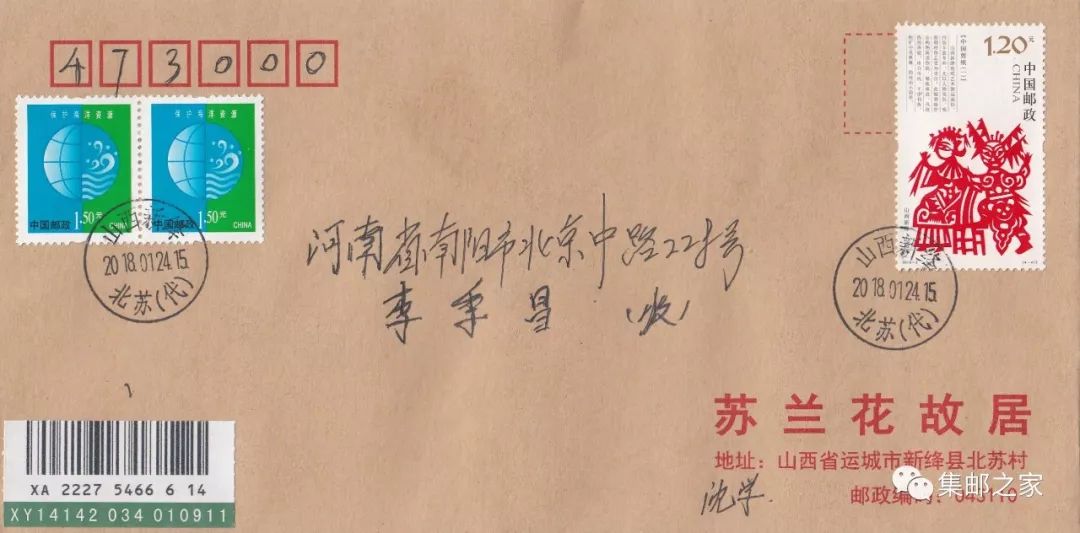 473000
保护海洋资源
保护海洋资源
中国邮政 1.50元 CHINA
中国邮政 1.50元 CHINA
1.20元
中国邮政
CHINA
《中国剪纸（一）》
山西
2018.01.24.15
北苏(代)
山西
2018.01.24.15
北苏(代)
河南省南阳市北京中路228号
李秉昌（收）
苏兰花故居
地址：山西省运城市新绛县北苏村
邮政编码：043110
沈学
XA 2227 5466 6 14
XY14142 034 010911
集邮之家